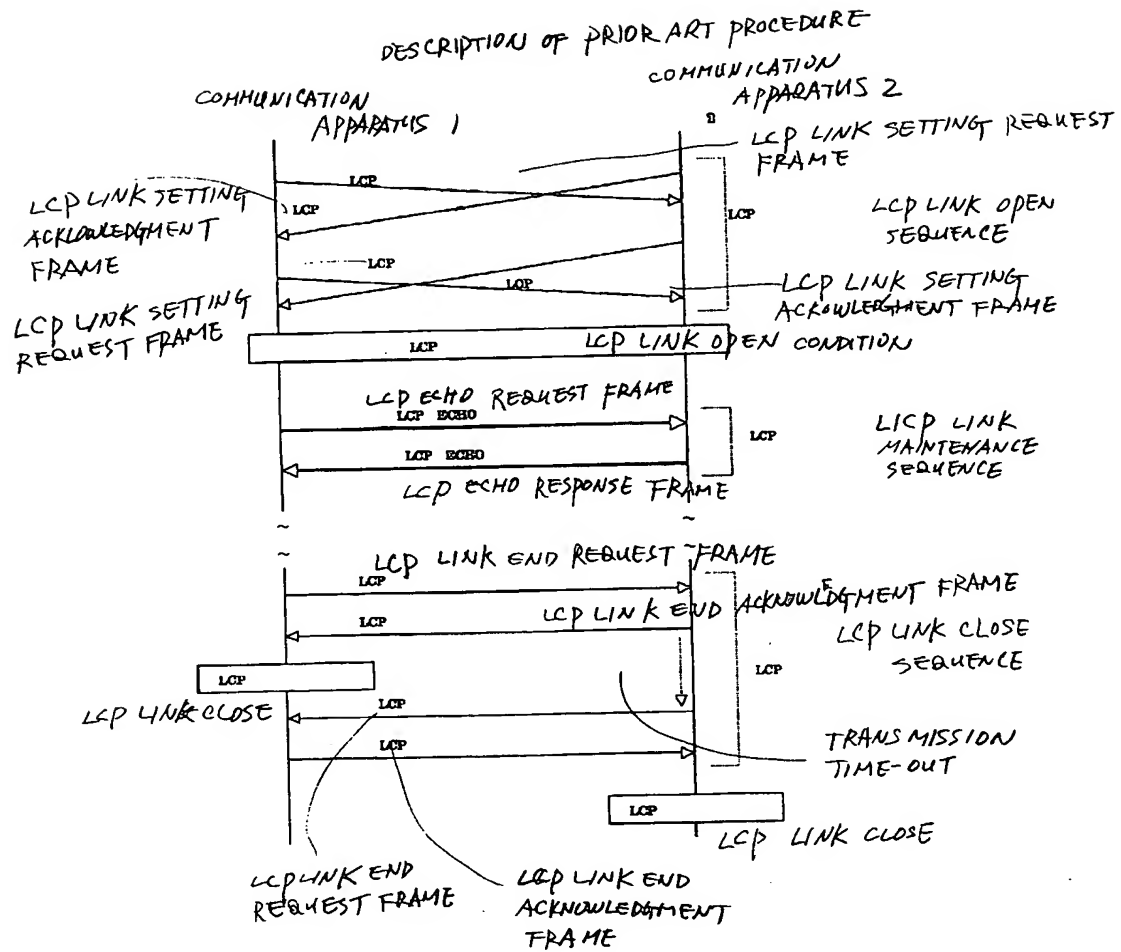 DESCRIPTION OF PRIOR ART PROCEDURE
COMMUNICATION
APPARATUS 1
COMMUNICATION
APPARATUS 2
LCP LINK SETTING REQUEST
FRAME
LCP
LCP LINK SETTING
ACKLOWLEDGMENT
FRAME
LCP
LCP
LCP LINK OPEN
SEQUENCE
LCP
LCP
LCP LINK SETTING
REQUEST FRAME
LCP LINK SETTING
ACKOWLEDGMENT FRAME
LCP
LCP LINK OPEN CONDITION
LCP ECHO REQUEST FRAME
LCP ECHO
LCP
LICP LINK
MAINTENANCE
SEQUENCE
LCP ECHO
LCP ECHO RESPONSE FRAME
~
~
~
~
LCP LINK END REQUEST FRAME
LCP
LCP LINK END ACKNOWLEDGMENT FRAME
LCP
LCP LINK CLOSE
SEQUENCE
LCP
LCP
LCP LINK CLOSE
LCP
LCP
TRANSMISSION
TIME-OUT
LCP
LCP LINK CLOSE
LCP LINK END
REQUEST FRAME
LCP LINK END
ACKNOWLEDGMENT
FRAME